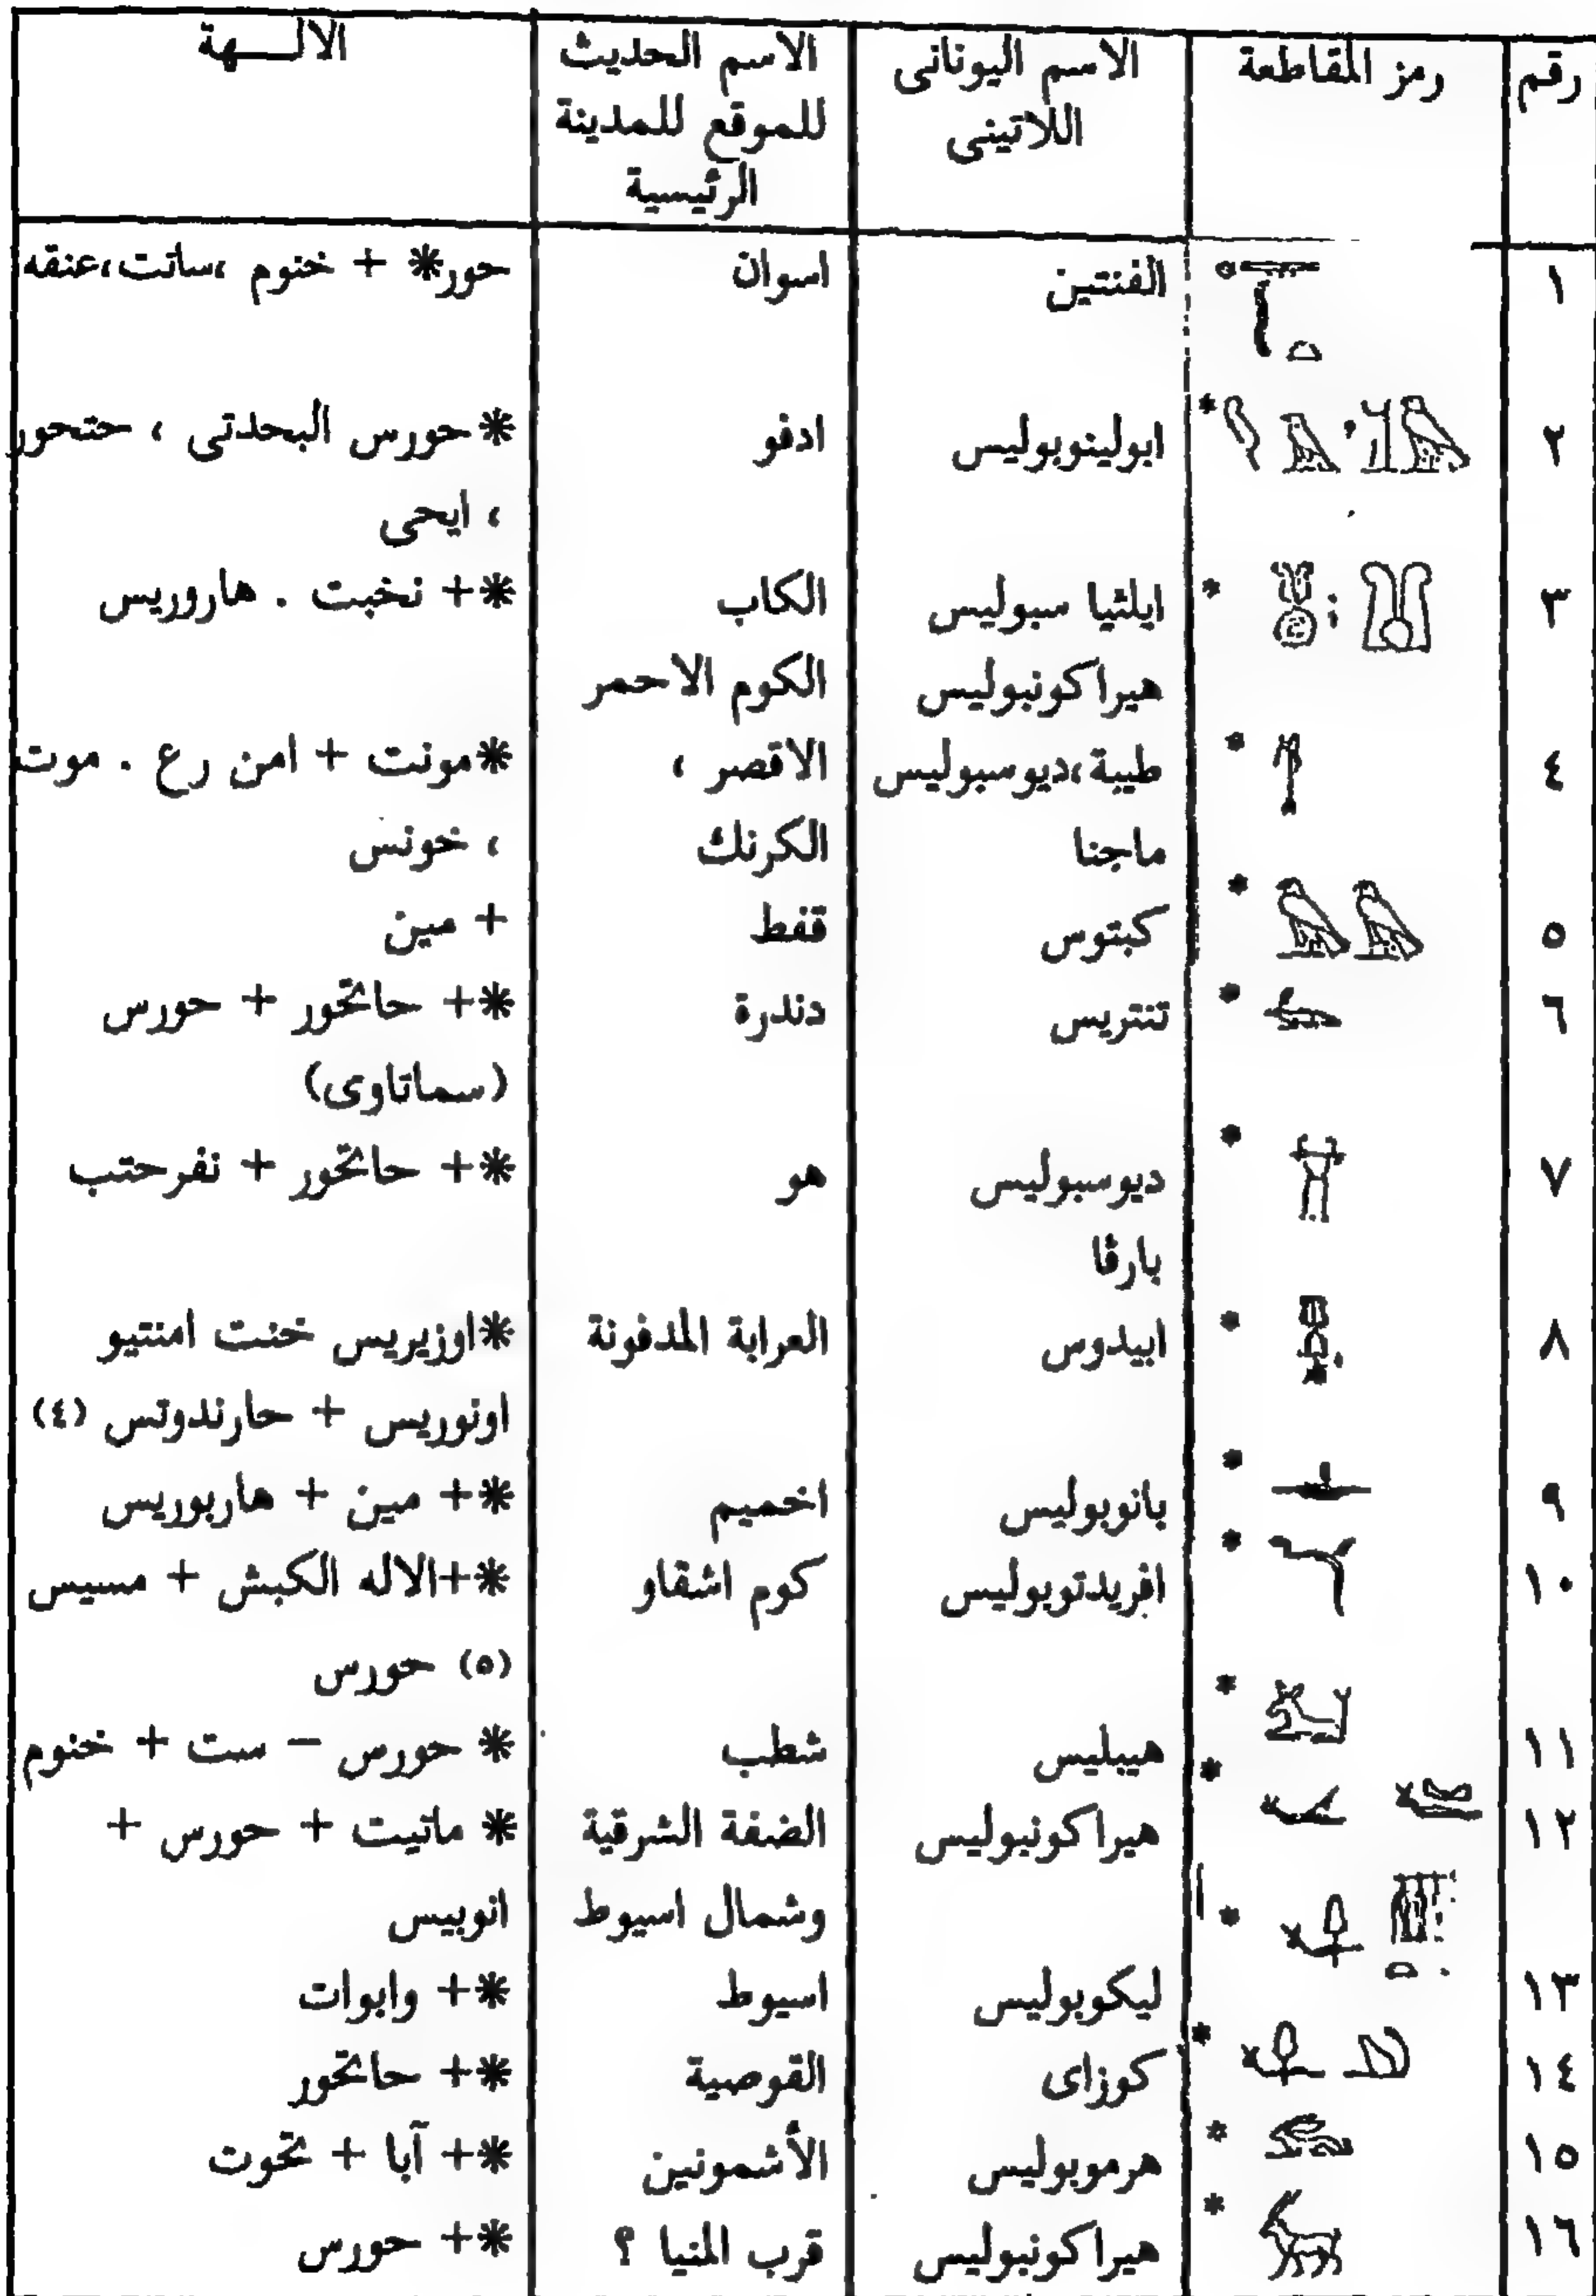 رقم | رمز المقاطعة | الاسم اليونانى | الاسم الحديث | الالـــهة
اللاتينى | للموقع للمدينة
الرئيسية
١ | الفنتين | اسوان | حور* + خنوم ،ساتت،عنقه
٢ | * | ابولينوبوليس | ادفو | *حورس البحدتى ، حتحور
، ايحى
٣ | * | ايلثيا سبوليس | الكاب | *+ نخبت . هاروريس
هيراكونبوليس | الكوم الاحمر
٤ | * | طيبة،ديوسبوليس | الاقصر ، | *مونت + امن رع . موت
ماجنا | الكرنك | ، خونس
٥ | * | كبتوس | قفط | + مين
٦ | * | تنتريس | دندرة | *+ حاتحور + حورس
(سماتاوى)
٧ | * | ديوسبوليس | هو | *+ حاتحور + نفرحتب
بارڤا
٨ | * | ابيدوس | العرابة المدفونة | *اوزيريس خنت امنتيو
اونوريس + حارندوتس (٤)
٩ | * | بانوبوليس | اخميم | *+ مين + هاربوريس
١٠ | * | افريدتوبوليس | كوم اشقاو | *+الاله الكبش + مسيس
(٥) حورس
١١ | * | هيبليس | شطب | * حورس – ست + خنوم
١٢ | * | هيراكونبوليس | الضفة الشرقية | * ماتيت + حورس +
وشمال اسيوط | انوبيس
١٣ | * | ليكوبوليس | اسيوط | *+ وابوات
١٤ | * | كوزاى | القوصية | *+ حاتحور
١٥ | * | هرموبوليس | الأشمونين | *+ آبا + تحوت
١٦ | * | هيراكونبوليس | قرب المنيا ؟ | *+ حورس